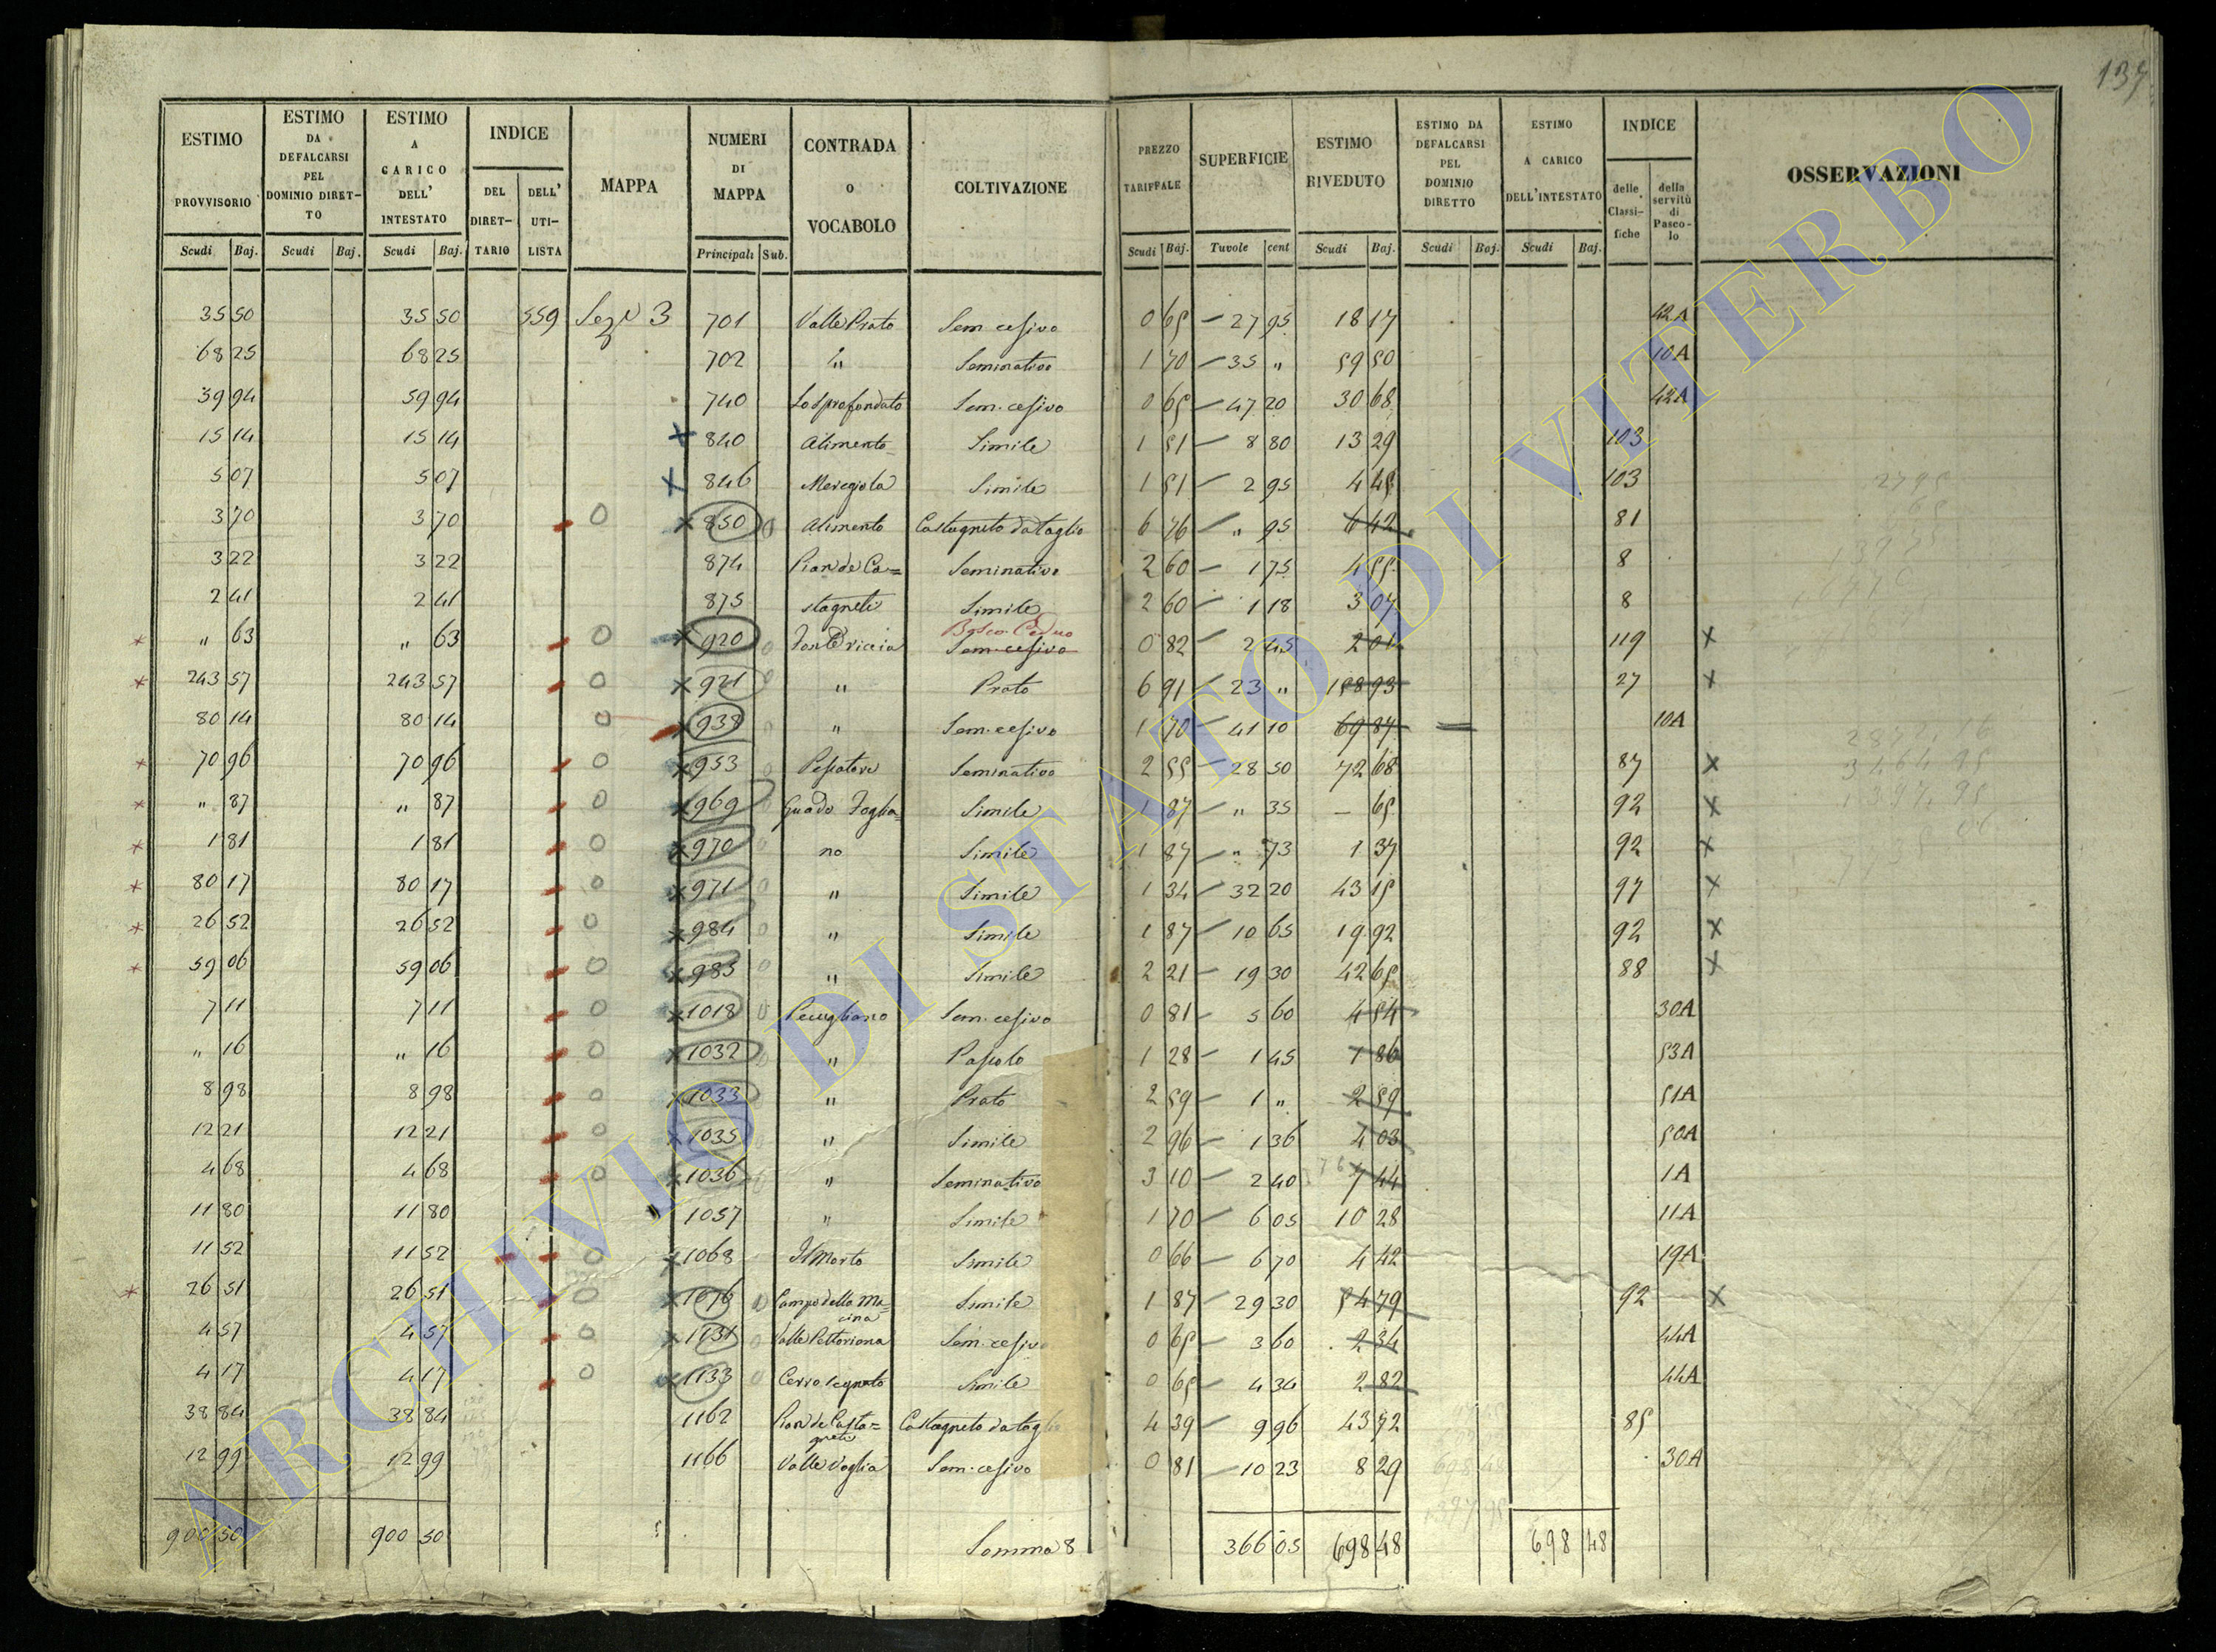 137
ESTIMO PROVVISORIO Scudi Baj.
ESTIMO DA DEFALCARSI PEL DOMINIO DIRET-TO Scudi Baj.
ESTIMO A CARICO DELL' INTESTATO Scudi Baj.
INDICE DEL DIRET-TARIO DELL' UTI-LISTA
MAPPA
NUMERI DI MAPPA Principali Sub.
CONTRADA O VOCABOLO
COLTIVAZIONE
PREZZO TARIFFALE Scudi Baj.
SUPERFICIE Tavole cent
ESTIMO RIVEDUTO Scudi Baj.
ESTIMO DA DEFALCARSI PEL DOMINIO DIRETTO Scudi Baj.
ESTIMO A CARICO DELL'INTESTATO Scudi Baj.
INDICE delle Classi-fiche della servitù di Pasco-lo
OSSERVAZIONI
35 50 35 50 559 Sez. 3 701 Valle Prato Sem. cesivo 0 65 – 27 95 18 17 42A
68 25 68 25 702 " Seminativo 1 70 – 35 " 59 50 10A
39 94 59 94 740 Lo Sprofondato Sem. cesivo 0 65 – 47 20 30 68 42A
15 14 15 14 x 840 Alimento Simile 1 51 – 8 80 13 29 103
5 07 5 07 x 846 Simile 1 51 – 2 95 4 45 103
3 70 3 70 – 0 x 850 0 Alimento Castagneto da taglio 6 76 – " 95 6 42 81
3 22 3 22 874 Pian de Ca= Seminativo 2 60 – 1 75 4 55 8
2 41 2 41 875 stagneti Simile 2 60 – 1 18 3 07 8
Bosco Ceduo
x " 63 " 63 – 0 x 920 0 Sem. cesivo 0 82 – 2 45 2 01 119 x
x 243 57 243 57 – 0 x 921 0 " Prato 6 91 – 23 " 158 93 27 x
80 14 80 14 0 – x 938 0 " Sem. cesivo 1 70 – 41 10 69 87 = 10A
x 70 96 70 96 – 0 x 953 0 Pesciatore Seminativo 2 55 – 28 50 72 68 87 x
x " 87 " 87 – 0 x 969 0 Guado Foglia= Simile 1 87 – " 35 – 65 92 x
x 1 81 1 81 – 0 x 970 0 no Simile 1 87 – " 73 1 37 92 x
x 80 17 80 17 – 0 x 971 0 " Simile 1 34 – 32 20 43 15 97 x
x 26 52 26 52 – 0 x 984 0 " Simile 1 87 – 10 65 19 92 92 x
x 59 06 59 06 – 0 x 985 0 " Simile 2 21 – 19 30 42 65 88 x
7 11 7 11 – 0 x 1018 0 Pecugliano Sem. cesivo 0 81 – 5 60 4 54 30A
" 16 " 16 – 0 x 1032 0 " Pascolo 1 28 – 1 45 1 86 53A
8 98 8 98 – 0 x 1033 0 " Prato 2 59 – 1 " 2 59 51A
12 21 12 21 – 0 x 1035 0 " Simile 2 96 – 1 36 4 03 50A
4 68 4 68 – 0 x 1036 0 " Seminativo 3 10 – 2 40 7 44 1A
11 80 11 80 1057 " Simile 1 70 – 6 05 10 28 11A
11 52 11 52 – – 0 x 1068 Il Morto Simile 0 66 – 6 70 4 42 19A
x 26 51 26 51 – 0 x 1076 0 Campo della Ma= Simile 1 87 – 29 30 54 79 92 x
cina
4 57 4 57 – 0 x 1131 0 Valle Pettoriana Sem. cesivo 0 65 – 3 60 2 34 44A
4 17 4 17 – 0 x 1133 0 Cerro Simile 0 65 – 4 34 2 82 44A
38 84 38 84 1162 Pian de Casta= Castagneto da taglio 4 39 – 9 96 43 72 85
gneti
12 99 12 99 1166 Valle Voglia Sem. cesivo 0 81 – 10 23 8 29 30A
900 50 900 50 Somma 8 366 05 698 48 698 48
ARCHIVIO DI STATO DI VITERBO